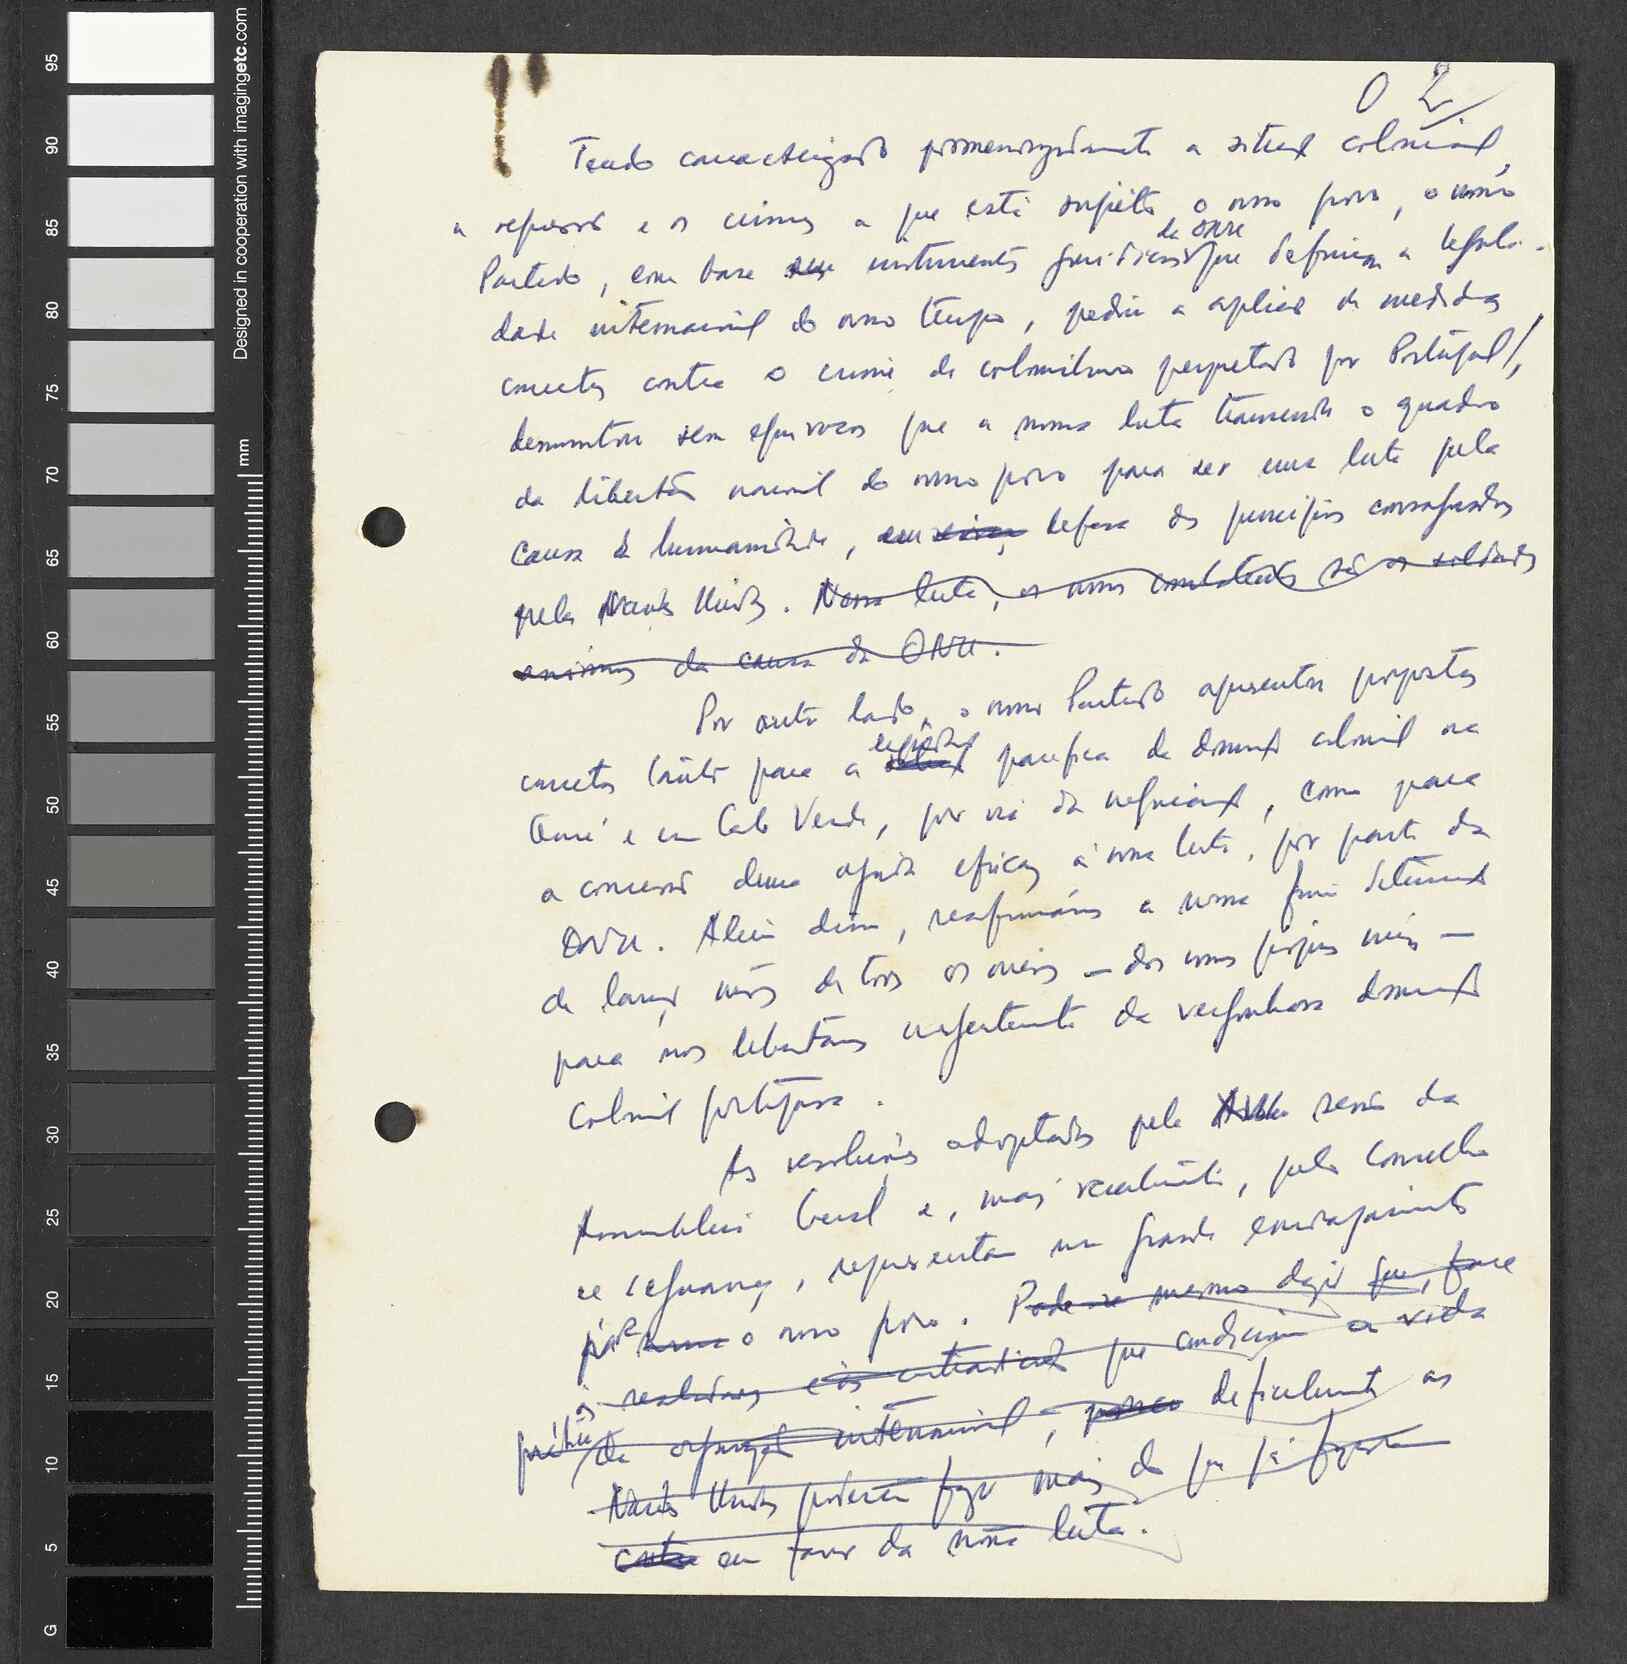 95
90
85
80
75
70
65
60
55
50
45
40
35
30
25
20
15
10
5
G
mm
Designed in cooperation with imagingetc.com
0 2
Tendo caracterizado pormenorizadamente a situaçã colonial,
a repressão e os crimes a que está sujeito o nosso povo, o nosso
da ONU
Partido, com base instrumentos jurídicos que definiam a legali-
dade internacional do nosso tempo, pediu a aplicação de medidas
concretas contra o crime de colonialismo perpetrado por Portugal,
demonstrou sem equívocos que a nossa luta transcende o quadro
da libertação nacional do nosso povo para ser uma luta pela
causa da humanidade, defesa dos princípios consagrados
pelas Nações Unidas. Nossa luta, os nossos combatentes são os soldados
anónimos da causa da ONU.
Por outro lado, o nosso Partido apresentou propostas
concretas tanto para a pacífica da dominação colonial na
Guiné e em Cabo Verde, por via da negociação, como para
a concessão duma ajuda eficaz à nossa luta, por parte da
ONU. Além disso, reafirmámos a nossa firme determinação
de lançar mãos de todos os meios — dos nossos próprios meios —
para nos libertarmos urgentemente da vergonhosa dominação
colonial portuguesa.
As resoluções adoptadas pela sessão da
Assembleia Geral e, mais recentemente, pelo Conselho
de Segurança, representam um grande encorajamento
para o nosso povo. Pode-se mesmo dizer que, face
às realidades e às contradições que condicionam a vida
prática da organização internacional, dificilmente as
Nações Unidas poderão fazer mais do que já fizeram
em favor da nossa luta.